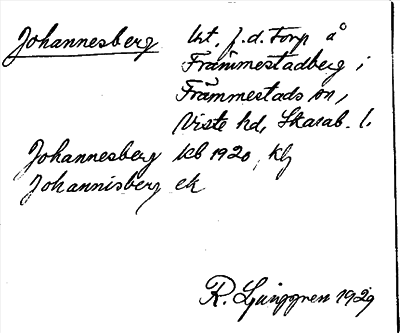 Johannesberg lht, f.d. torp å
Främmestadberg i
Främmestads sn,
Viste hd, Skarab. l.
Johannesberg kb 1920, klj
Johannisberg ek
R. Ljunggren 1929